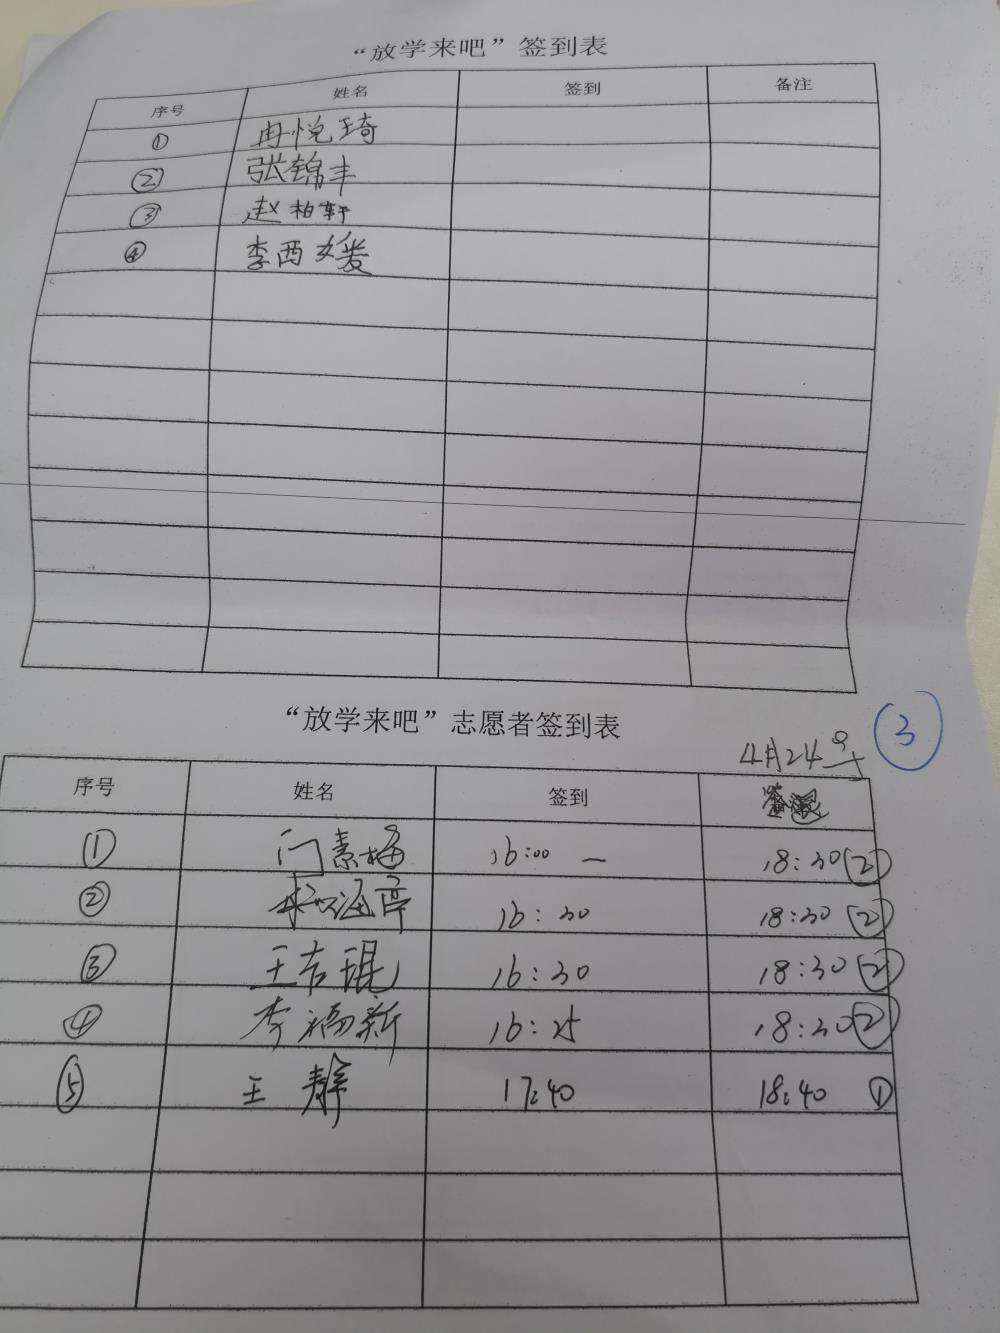 “放学来吧”签到表
序号 姓名 签到 备注
① 冉悦琦
② 张锦丰
③ 赵柏轩
④ 李西媛
“放学来吧”志愿者签到表 ③
4月24号
序号 姓名 签到
① 门素梅 16:00 — 18:30 ②
② 海亭 16:30 18:30 ②
③ 王吉琨 16:30 18:30 ②
④ 李福新 16:25 18:30 ②
⑤ 王静 17:40 18:40 ①